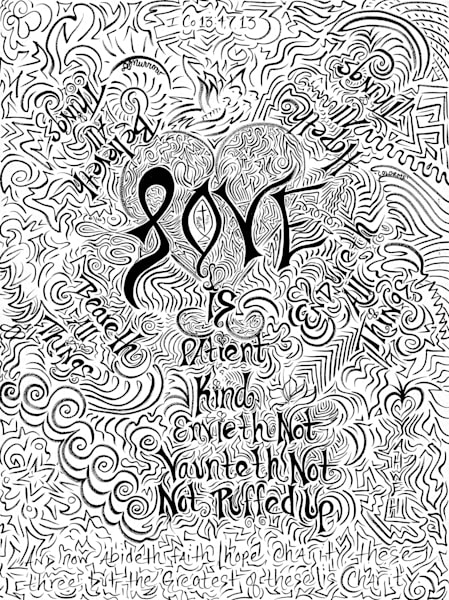 I Co 13:4-7 13
Believeth
All
Things
Hopeth
All
Things
LOVE
is
Patient
Kind
Envieth Not
Vaunteth Not
Not Puffed Up
Beareth
All
Things
Endureth
All
Things
And now Abideth faith hope Charity these
three but the Greatest of these is Charity